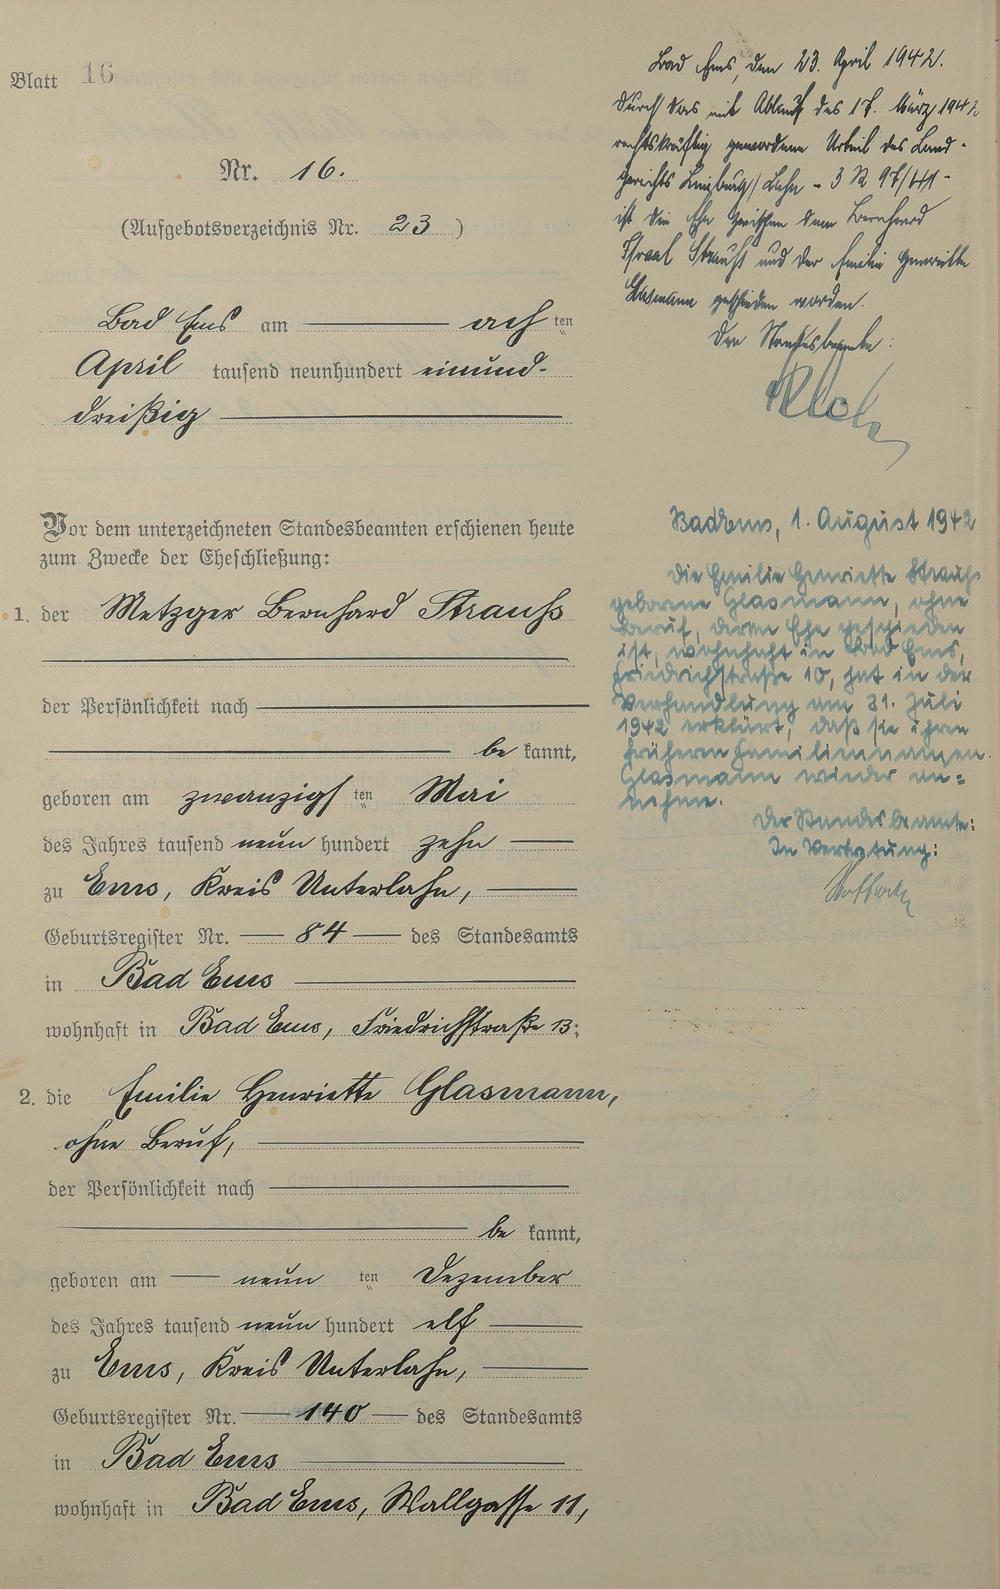 Blatt 16
Nr. 16.
(Aufgebotsverzeichnis Nr. 23)
Bad Ems am achten
April tausend neunhundert einund-
dreißig
Vor dem unterzeichneten Standesbeamten erschienen heute
zum Zwecke der Eheschließung:
1. der Metzger Bernhard Strauß
der Persönlichkeit nach
bekannt,
geboren am zwanzigsten Mai
des Jahres tausend neunhundert zehn
zu Ems, Kreis Unterlahn,
Geburtsregister Nr. 84 des Standesamts
in Bad Ems
wohnhaft in Bad Ems, Friedrichstraße 13;
2. die Emilie Henriette Glasmann,
ohne Beruf,
der Persönlichkeit nach
bekannt,
geboren am neunten Dezember
des Jahres tausend neunhundert elf
zu Ems, Kreis Unterlahn,
Geburtsregister Nr. 140 des Standesamts
in Bad Ems
wohnhaft in Bad Ems, Wallgasse 11,
Bad Ems, den 23. April 1942.
Durch das mit Ablauf des 17. März 1942
rechtskräftig gewordene Urteil des Land-
gerichts Limburg/Lahn - 3 R 97/41 -
ist die Ehe zwischen dem Bernhard
Israel Strauß und der Emilie Henriette
Glasmann geschieden worden.
Der Standesbeamte:
Bad Ems, 1. August 1942
Die Emilie Henriette Strauß
geborene Glasmann, ohne
Beruf, deren Ehe geschieden
ist, wohnhaft in Bad Ems,
Friedrichstraße 10, hat in der
Verhandlung am 31. Juli
1942 erklärt, daß sie ihren
früheren Familiennamen
Glasmann wieder an=
nehme.
Der Standesbeamte:
In Vertretung: